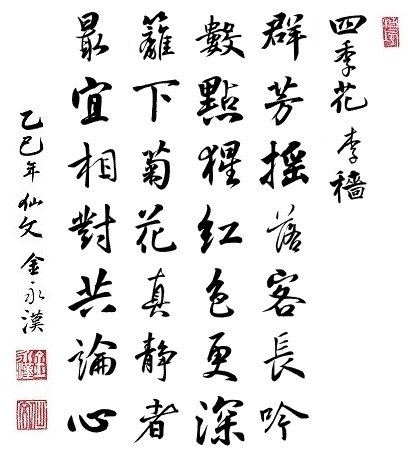 四季花 李穡
群芳搖落客長吟
數點猩紅色更深
籬下菊花真靜者
最宜相對共論心
乙巳年 仙文 金永漢